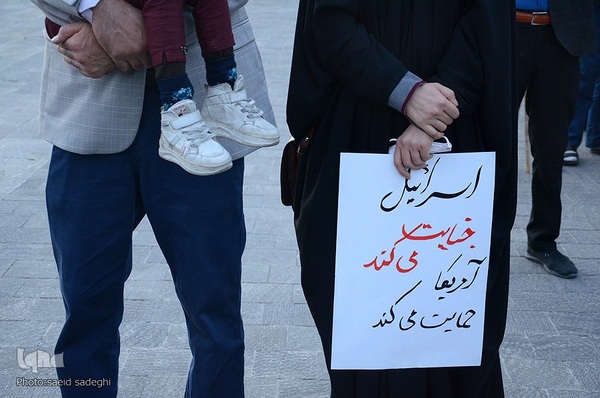 اسرائیل
جنایت
می کند
آمریکا
حمایت می کند
ایکنا
Photo:saeid sadeghi